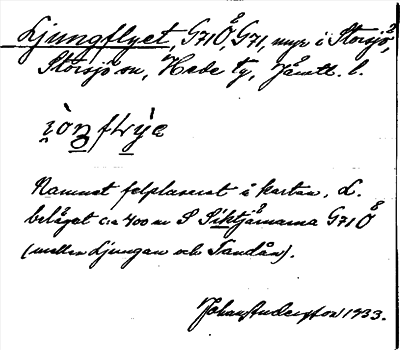 Ljungflyet, G71Ö, G71, myr i Storsjö,
Storsjö sn, Hede tg, Jämtl. l.
Namnet felplacerat å kartan. L.
beläget c:a 400 m S Siktjärnarna G71Ö
(mellan Ljungan och Tandån).
Johan Anderson 1933.